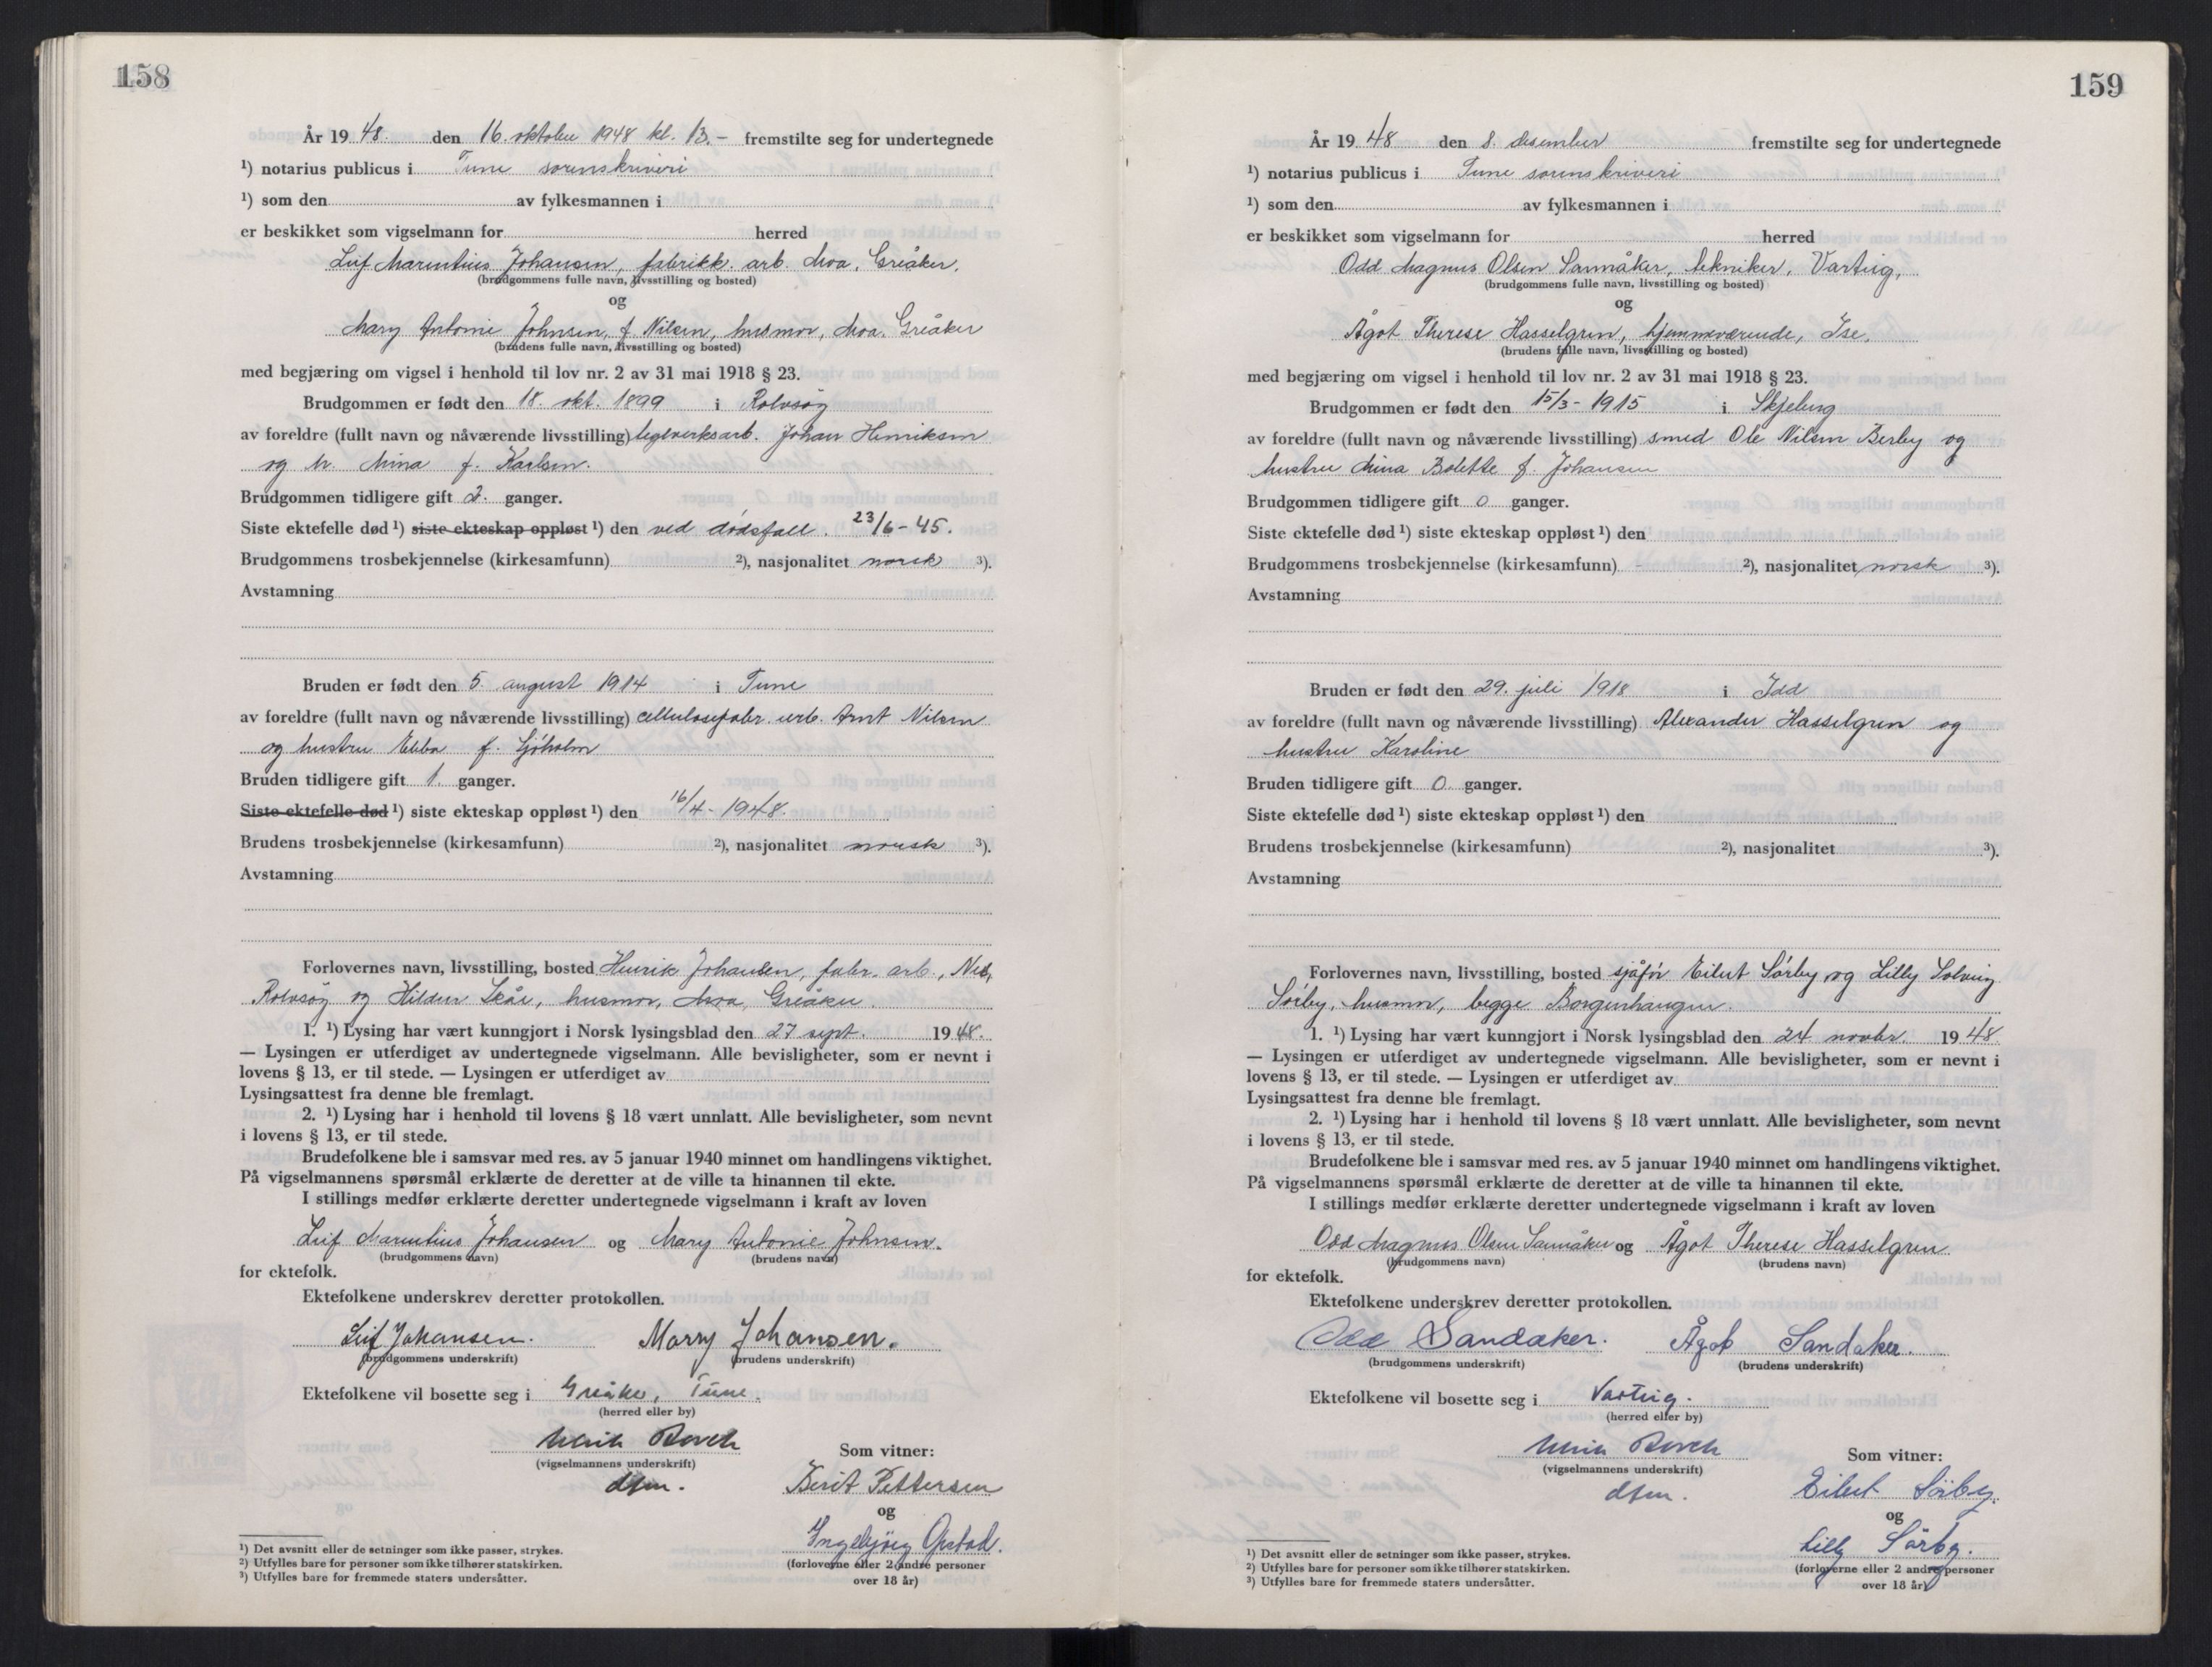 158
År 1948. den 16. oktober 1948 kl. 13.– fremstilte seg for undertegnede
¹) notarius publicus i Tune sorenskriveri
¹) som den av fylkesmannen i
er beskikket som vigselmann for herred
Leif Marentius Johansen, fabrikk. arb. Moa, Greåker,
(brudgommens fulle navn, livsstilling og bosted)
og
Mary Antonie Johnsen, f. Nilsen, husmor, Moa. Greåker
(brudens fulle navn, livsstilling og bosted)
med begjæring om vigsel i henhold til lov nr. 2 av 31 mai 1918 § 23.
Brudgommen er født den 18. okt. 1899 i Rolvsøy
av foreldre (fullt navn og nåværende livsstilling) teglverksarb. Johan Henriksen
og h. Mina f. Karlsen.
Brudgommen tidligere gift 2. ganger.
Siste ektefelle død ¹) siste ekteskap oppløst ¹) den ved dødsfall. 23/6-45.
Brudgommens trosbekjennelse (kirkesamfunn) ²), nasjonalitet norsk ³).
Avstamning
Bruden er født den 5. august 1914 i Tune
av foreldre (fullt navn og nåværende livsstilling) cellulosefabr. arb. Arnt Nilsen
og hustru Ebba f. Sjöholm
Bruden tidligere gift 1. ganger.
Siste ektefelle død ¹) siste ekteskap oppløst ¹) den 16/4-1948.
Brudens trosbekjennelse (kirkesamfunn) ²), nasjonalitet norsk ³).
Avstamning
Forlovernes navn, livsstilling, bosted Henrik Johansen, fabr. arb.,
Rolvsøy og Hildur Skår, husmor, Moa, Greåker.
1. ¹) Lysing har vært kunngjort i Norsk lysingsblad den 27 sept. 1948.
— Lysingen er utferdiget av undertegnede vigselmann. Alle bevisligheter, som er nevnt i
lovens § 13, er til stede. — Lysingen er utferdiget av
Lysingsattest fra denne ble fremlagt.
2. ¹) Lysing har i henhold til lovens § 18 vært unnlatt. Alle bevisligheter, som nevnt
i lovens § 13, er til stede.
Brudefolkene ble i samsvar med res. av 5 januar 1940 minnet om handlingens viktighet.
På vigselmannens spørsmål erklærte de deretter at de ville ta hinannen til ekte.
I stillings medfør erklærte deretter undertegnede vigselmann i kraft av loven
Leif Marentius Johansen og Mary Antonie Johnsen.
(brudgommens navn) (brudens navn)
for ektefolk.
Ektefolkene underskrev deretter protokollen.
Leif Johansen. Marry Johansen.
(brudgommens underskrift) (brudens underskrift)
Ektefolkene vil bosette seg i Greåker, Tune.
(herred eller by)
Ulrik Borch
(vigselmannens underskrift)
dfm.
Som vitner:
Berit Pettersen
og
Ingebjörg Opstad.
(forloverne eller 2 andre personer
over 18 år)
¹) Det avsnitt eller de setninger som ikke passer, strykes.
²) Utfylles bare for personer som ikke tilhører statskirken.
³) Utfylles bare for fremmede staters undersåtter.
159
År 1948 den 8. desember fremstilte seg for undertegnede
¹) notarius publicus i Tune sorenskriveri
¹) som den av fylkesmannen i
er beskikket som vigselmann for herred
Odd Magnus Olsen Sannåker, tekniker, Varteig,
(brudgommens fulle navn, livsstilling og bosted)
og
Ågot Therese Hasselgren, hjemmeværende, Ise,
(brudens fulle navn, livsstilling og bosted)
med begjæring om vigsel i henhold til lov nr. 2 av 31 mai 1918 § 23.
Brudgommen er født den 15/3-1915 i Skjeberg
av foreldre (fullt navn og nåværende livsstilling) smed Ole Nilsen Berby og
hustru Mina Bolette f. Johansen
Brudgommen tidligere gift 0 ganger.
Siste ektefelle død ¹) siste ekteskap oppløst ¹) den
Brudgommens trosbekjennelse (kirkesamfunn) - ²), nasjonalitet norsk ³).
Avstamning
Bruden er født den 29. juli 1918 i Idd
av foreldre (fullt navn og nåværende livsstilling) Alexander Hasselgren og
hustru Karoline
Bruden tidligere gift 0. ganger.
Siste ektefelle død ¹) siste ekteskap oppløst ¹) den
Brudens trosbekjennelse (kirkesamfunn) ²), nasjonalitet ³).
Avstamning
Forlovernes navn, livsstilling, bosted sjåfør Eilert Sørby og Lilly Solveig
Sørby, husmor, begge Borgenhaugen.
1. ¹) Lysing har vært kunngjort i Norsk lysingsblad den 24 novbr. 1948
— Lysingen er utferdiget av undertegnede vigselmann. Alle bevisligheter, som er nevnt i
lovens § 13, er til stede. — Lysingen er utferdiget av
Lysingsattest fra denne ble fremlagt.
2. ¹) Lysing har i henhold til lovens § 18 vært unnlatt. Alle bevisligheter, som nevnt
i lovens § 13, er til stede.
Brudefolkene ble i samsvar med res. av 5 januar 1940 minnet om handlingens viktighet.
På vigselmannens spørsmål erklærte de deretter at de ville ta hinannen til ekte.
I stillings medfør erklærte deretter undertegnede vigselmann i kraft av loven
Odd Magnus Olsen Sannåker og Ågot Therese Hasselgren
(brudgommens navn) (brudens navn)
for ektefolk.
Ektefolkene underskrev deretter protokollen.
Odd Sandaker. Ågot Sandaker.
(brudgommens underskrift) (brudens underskrift)
Ektefolkene vil bosette seg i Varteig.
(herred eller by)
Ulrik Borch
(vigselmannens underskrift)
dfm.
Som vitner:
Eilert Sörby.
og
Lilly Sörby.
(forloverne eller 2 andre personer
over 18 år)
¹) Det avsnitt eller de setninger som ikke passer, strykes.
²) Utfylles bare for personer som ikke tilhører statskirken.
³) Utfylles bare for fremmede staters undersåtter.